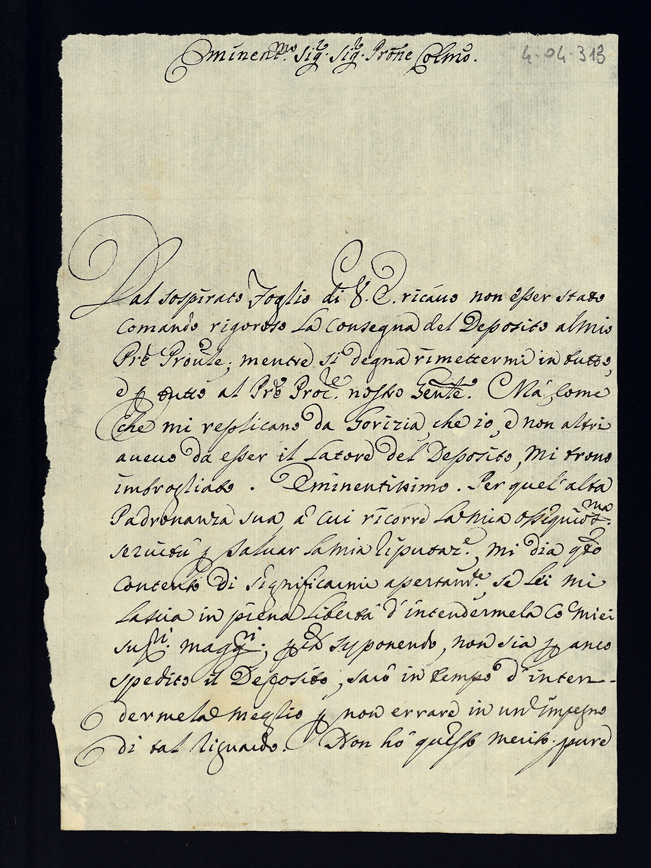 Eminent.mo Sig.r Sig.r Prone Colmo.
4-04-313
Dal sospirato Foglio di V. E. ricauo non esser stato
comando rigoroso la consegna del Deposito al mio
Pre Proule; mentre si degna rimettermi in tutto,
e p tutto al Pre Proc.re nostro Genle. Mà, come
che mi replicano da Gorizia, che io, e non altri
aueuo da esser il Latore del Deposito, mi trouo
imbrogliato. Eminentissimo. Per quel'alta
Padronanza sua, à cui ricorre la mia ossequios.ma
seruitù p saluar la mia riputaz.e, mi dia qto
contento di significarmi apertam.te, se lei mi
lascia in piena libertà d'intendermela co' miei
sup.ri magg.ri; p che supponendo, non sia p anco
spedito il Deposito, sarò in tempo d'inten-
dermela meglio p non errare in un'impegno
di tal riguardo. Non hò questo merito, pure